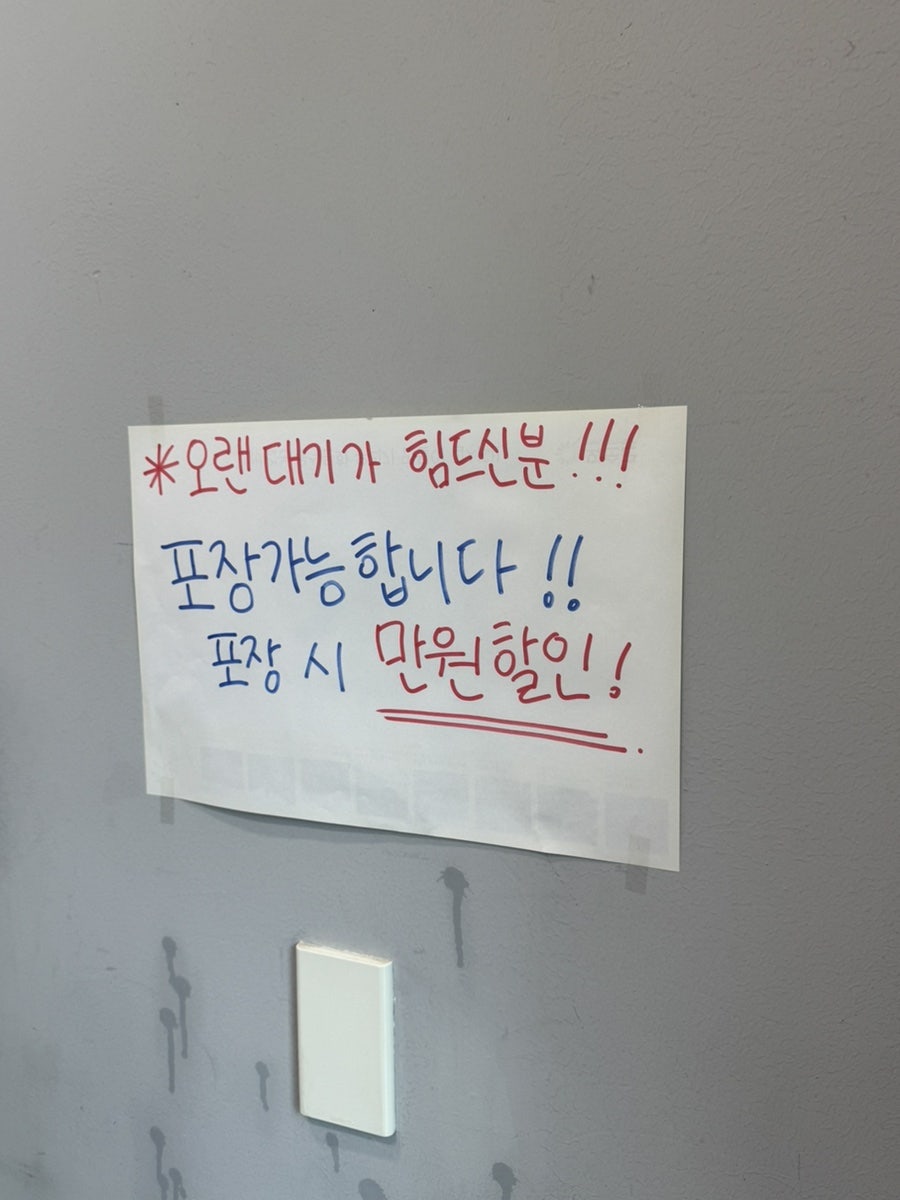 *오랜대기가 힘드신분!!!
포장가능합니다!!
포장 시 만원할인!